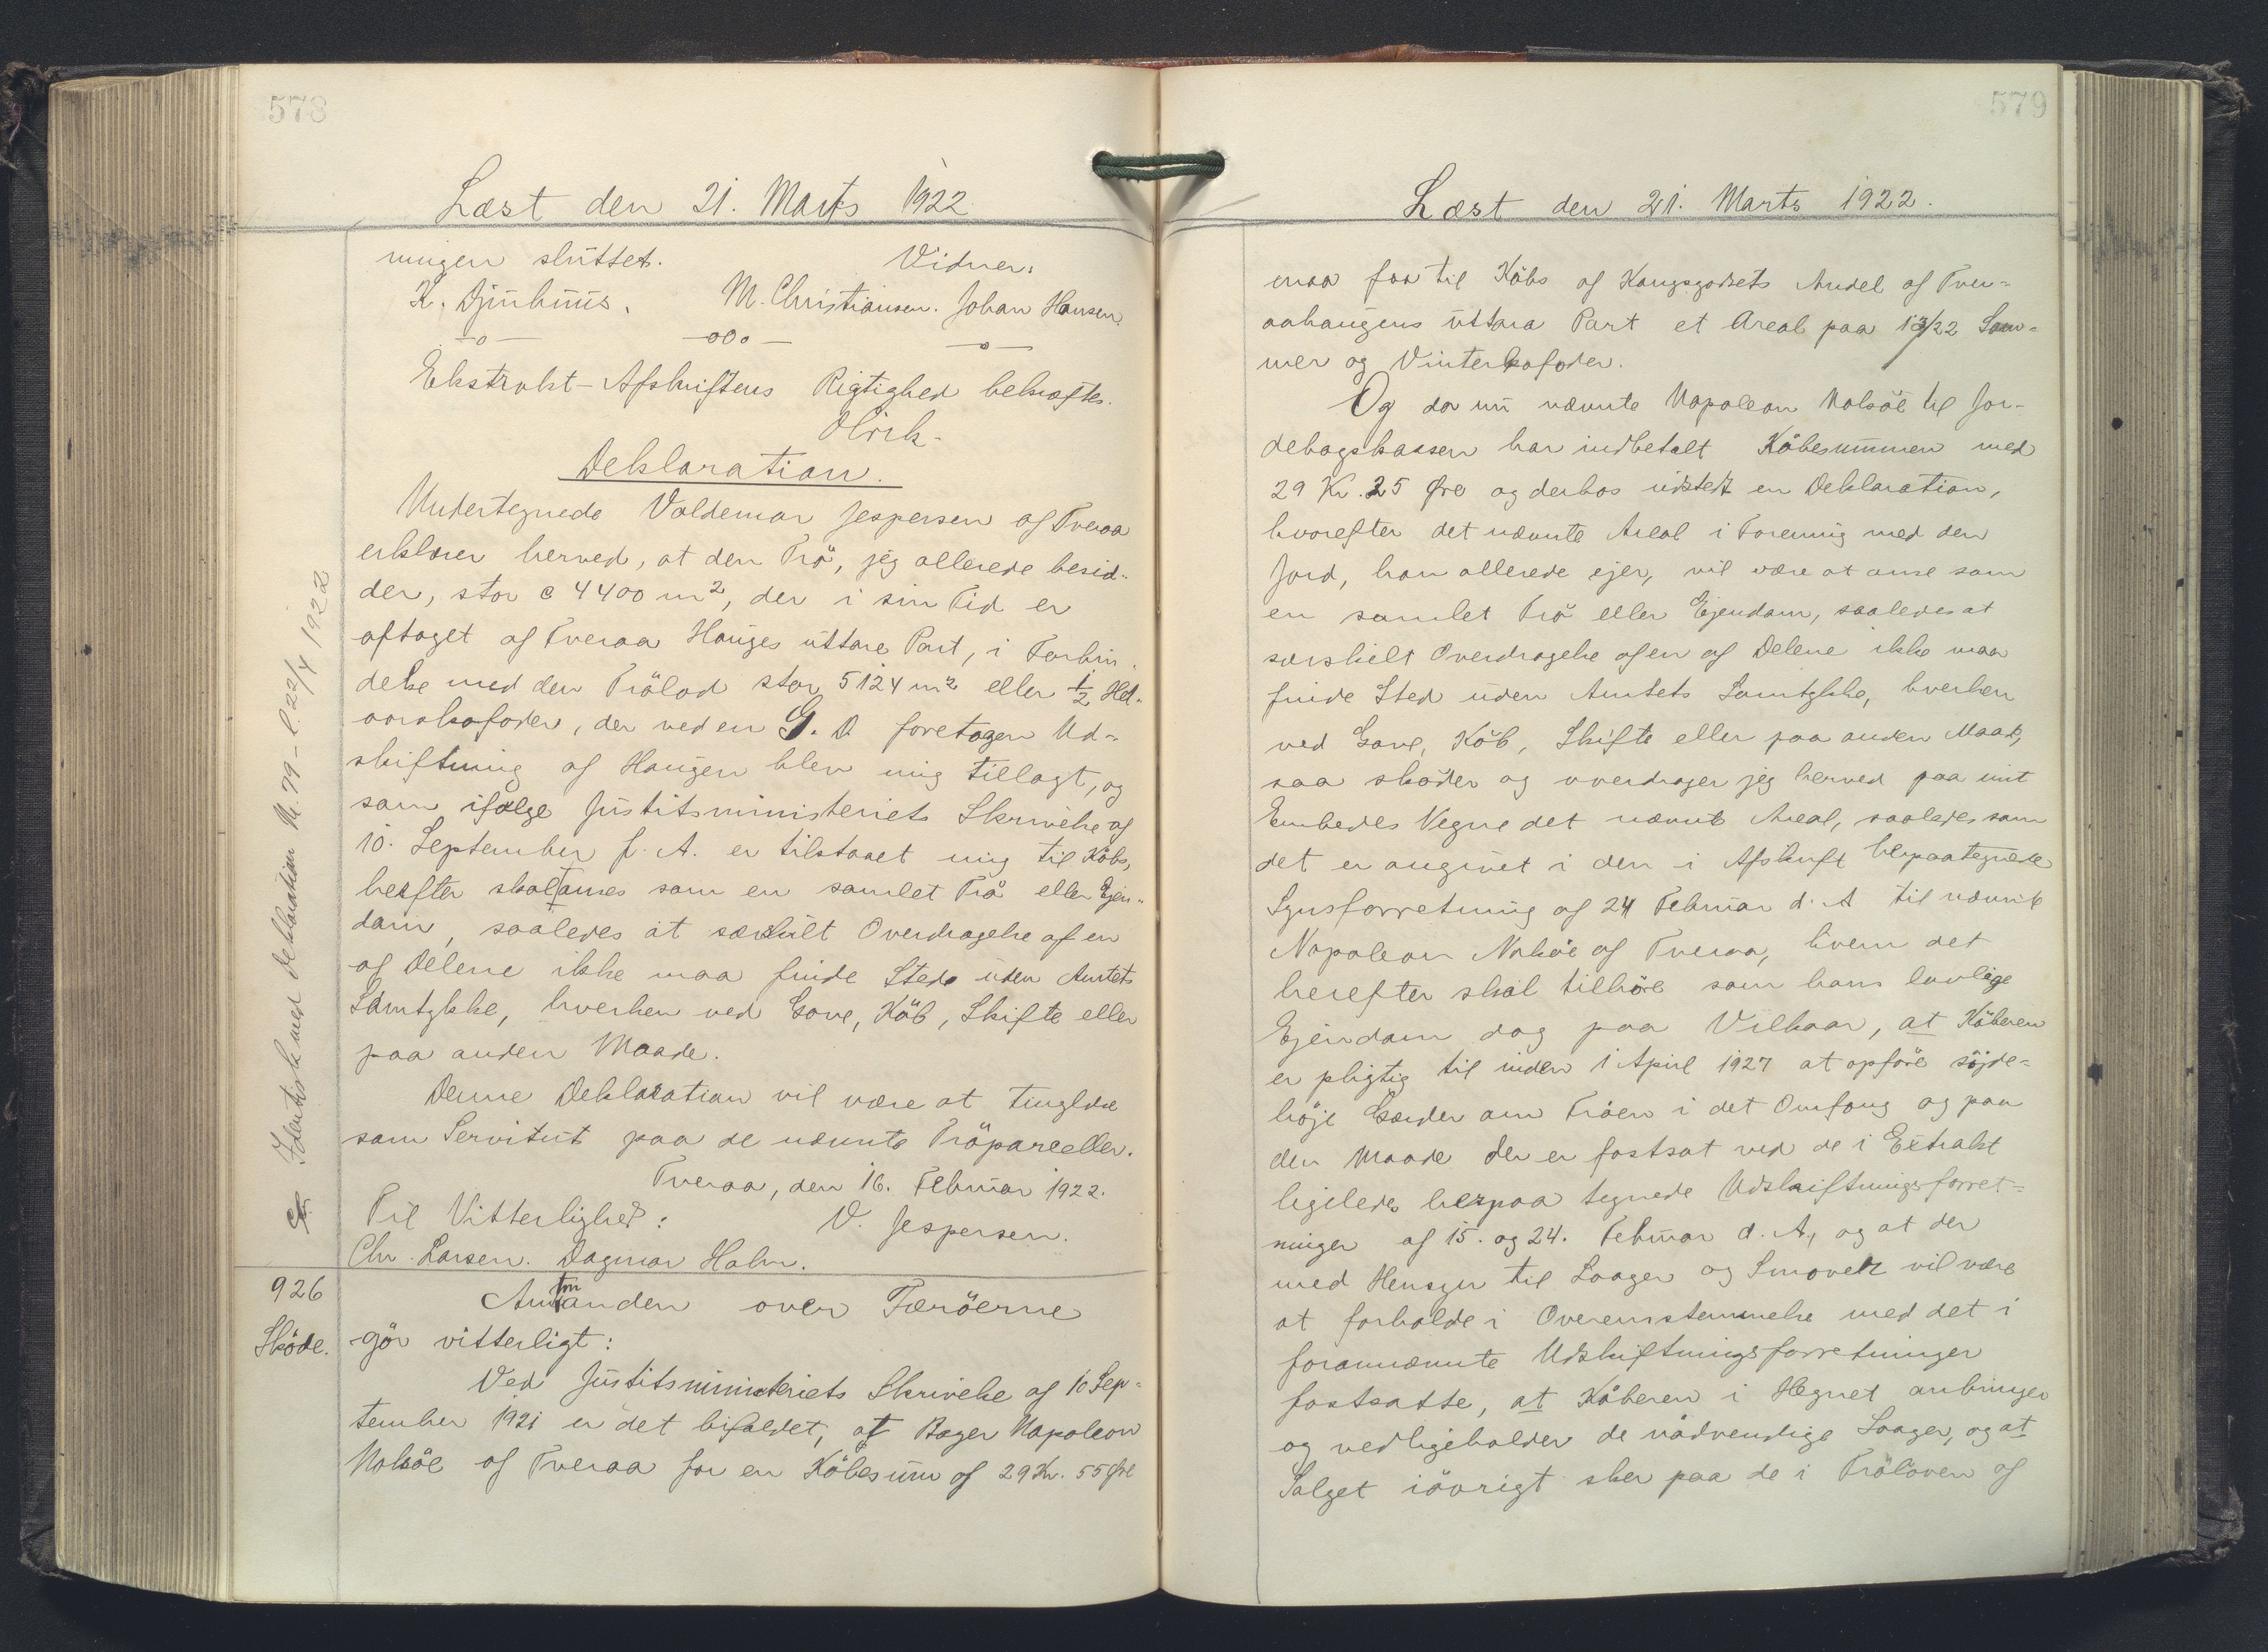 578
Læst den 21. Marts 1922
ningen sluttet.
Vidner:
K. Djurhuus. M. Christiansen. Johan Hansen.
-o- -oOo- -o-
Ekstrakt-Afskriftens Rigtighed bekræftes.
Olrik.
Deklaration.
Undertegnede Valdemar Jespersen af Tveraa
erklærer herved, at den Trö, jeg allerede besid-
der, stor c 4400 m², der i sin Tid er
aftaget af Tveraa Hauges uttara Part, i Forbin-
delse med den Trölod stor 5124 m² eller 1/2 Hel-
aarskofoder, der ved en G. D. foretagen Ud-
skiftning af Haugen blev mig tillagt, og
som ifølge Justitsministeriets Skrivelse af
10. September f. A. er tilstaaet mig til Köbs,
herefter skal anses som en samlet Trö eller Ejen-
dom, saaledes at særskilt Overdragelse af en
af Delene ikke maa finde Sted uden Amtets
Samtykke, hverken ved Gave, Köb, Skifte eller
paa anden Maade.
Denne Deklaration vil være at tinglæse
som Servitut paa de nævnte Tröparceller.
Tveraa, den 16. Februar 1922.
Til Vitterlighed: V. Jespersen.
Chr. Larsen. Dagmar Holm.
Identisk med Deklaration N. 79 - l. 22/4 1922
926
Sköde.
Amtmanden over Færöerne
gör vitterligt:
Ved Justitsministeriets Skrivelse af 10 Sep-
tember 1921 er det bifaldet, at Bager Napoleon
Nolsöe af Tveraa for en Köbesum af 29 Kr. 55 Øre
579
Læst den 21. Marts 1922.
maa faa til Köbs af Kongsgodsets Andel af Tver-
aahaugens uttara Part et Areal paa 13/22 Som-
mer og Vinterkofoder.
Og da nu nævnte Napoleon Nolsöe til Jor-
debogskassen har indbetalt Köbesummen med
29 Kr. 25 Øre og derhos udstedt en Deklaration,
hvorefter det nævnte Areal i Forening med den
Jord, han allerede ejer, vil være at anse som
en samlet Trö eller Ejendom, saaledes at
særskilt Overdragelse af en af Delene ikke maa
finde Sted uden Amtets Samtykke, hverken
ved Gave, Köb, Skifte eller paa anden Maade,
saa sköder og overdrager jeg herved paa mit
Embedes Vegne det nævnte Areal, saaledes som
det er angivet i den i Afskrift herpaategnede
Synsforretning af 24 Februar d. A. til nævnte
Napoleon Nolsöe af Tveraa, hvem det
herefter skal tilhöre som hans lovlige
Ejendom dog paa Vilkaar, at Köberen
er pligtig til inden 1 April 1927 at opföre söjde-
höje Gærder om Tröen i det Omfang og paa
den Maade der er fastsat ved de i Extrakt
ligeledes herpaa tegnede Udskiftningsforret-
ninger af 15. og 24. Februar d. A., og at der
med Hensyn til Laager og Smovek vil være
at forholde i Overensstemmelse med det i
forannævnte Udskiftningsforretninger
fastsatte, at Köberen i Hegnet anbringer
og vedligeholder de nödvendige Laager, og at
Salget iövrigt sker paa de i Tröloven af